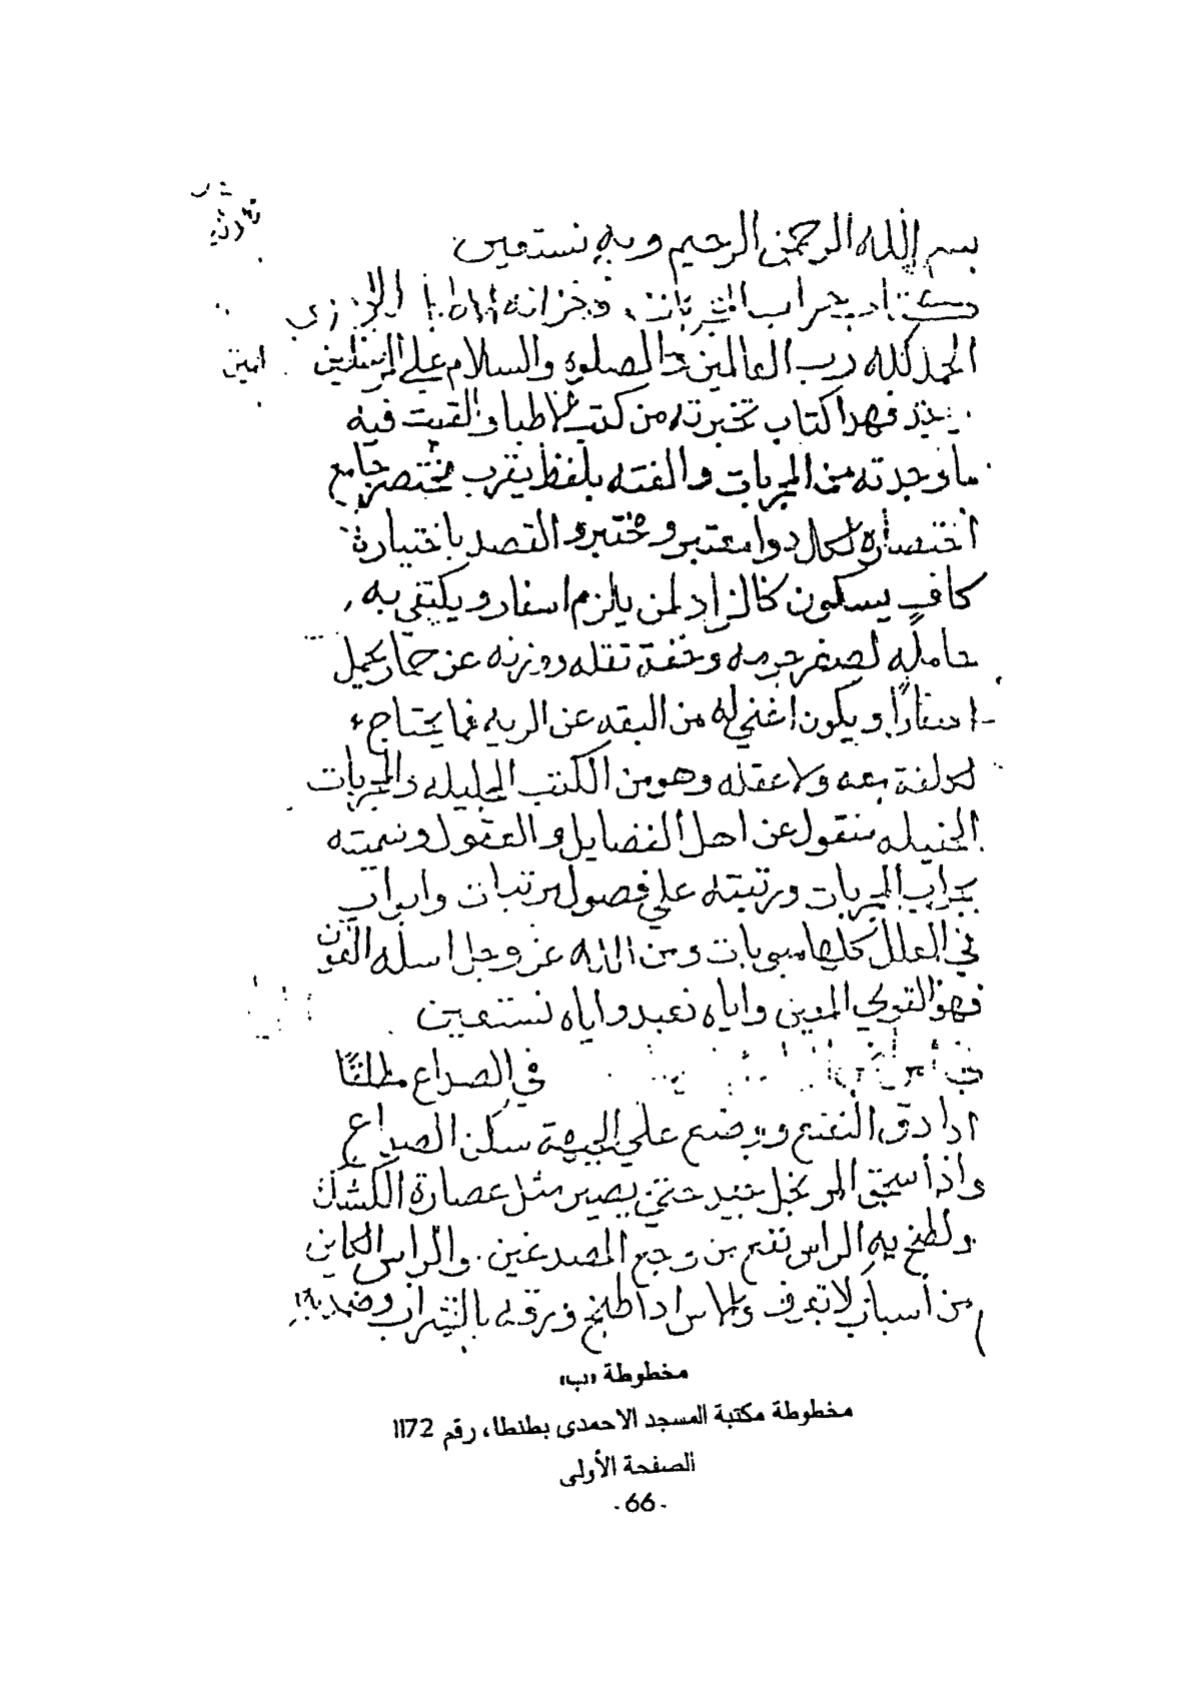 بسم الله الرحمن الرحيم وبه نستعين
كتاب جراب المجربات وخزانة الاطبا للرازي
الحمد لله رب العالمين والصلوة والسلام على المرسلين امين
فهدا كتاب تخيرته من كتب الاطبا والقيت فيه
ما وجدته من المجربات والفته بلفظ يقرب مختصر جامع
اختصاره لكل دوا معتبر ومختبر والقصد باختياره
كاف يسكون كالزاد لمن يلزم اسفار ويكتفى به
حامله لصغر جرمه وخفة تقله ووزنه عن حمار يحمل
اسفارا ويكون اغنى له من البقه عن الريه فما يحتاج
لكلفة معه ولا عقله وهو من الكتب الجليله والمجربات
الجنيله منقول عن اهل الفضايل والعقول وسميته
بجراب المجربات ورتبته على فصول مرتبات وابواب
في العلل كلها مبوبات ومن الله عز وجل اسله العون
فهو القوي المعين واياه نعبد واياه نستعين
في الصداع مطلقا
ادا دق النعنع ووضع على الجبهة سكن الصداع
واذا سحق المر بخل جيد حتى يصير مثل عصارة الكشك
ولطخ به الراس نفع من وجع الصدغين والراس الكاين
من أسباب لا تعرف والاس ادا طبخ ورقه بالشراب وضمد به
مخطوطة «ب»
مخطوطة مكتبة المسجد الاحمدى بطنطا، رقم 1172
الصفحة الأولى
- 66 -